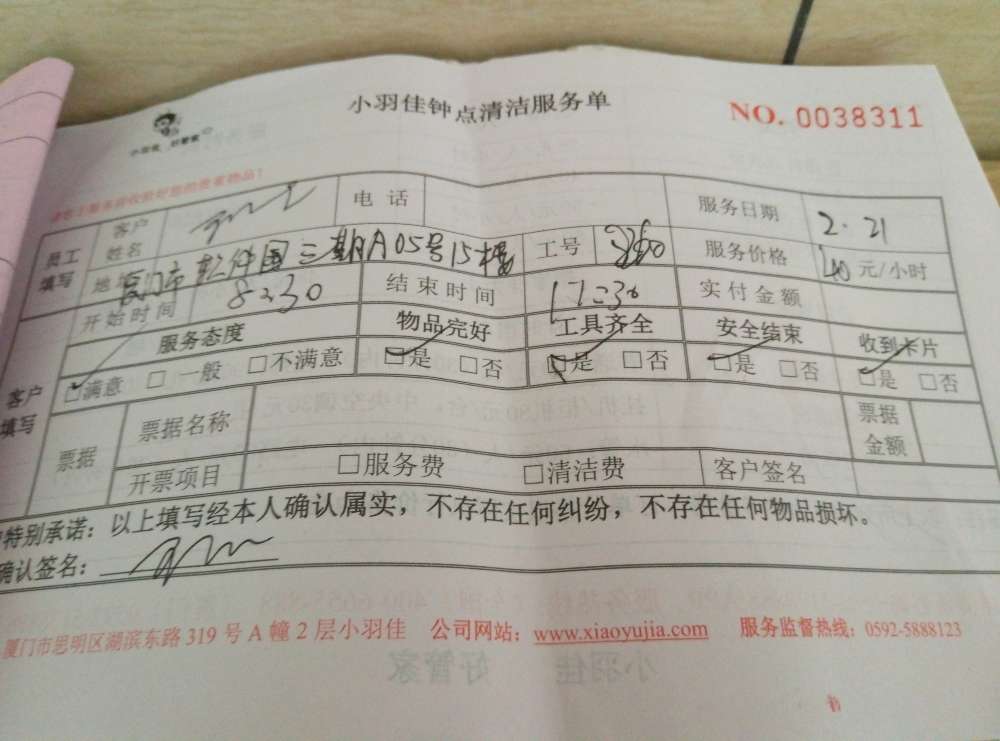 小羽佳钟点清洁服务单
NO. 0038311
小羽佳 好管家
员工填写 客户姓名 电话 服务日期 2.21
地址 厦门市软件园三期A05号15楼 工号 服务价格 40元/小时
开始时间 8:30 结束时间 17:30 实付金额
客户填写 服务态度 物品完好 工具齐全 安全结束 收到卡片
☑满意 □一般 □不满意 ☑是 □否 ☑是 □否 ☑是 □否 ☑是 □否
票据 票据名称 票据金额
开票项目 □服务费 □清洁费 客户签名
特别承诺：以上填写经本人确认属实，不存在任何纠纷，不存在任何物品损坏。
确认签名：
厦门市思明区湖滨东路 319 号 A 幢 2 层小羽佳 公司网站：www.xiaoyujia.com 服务监督热线：0592-5888123